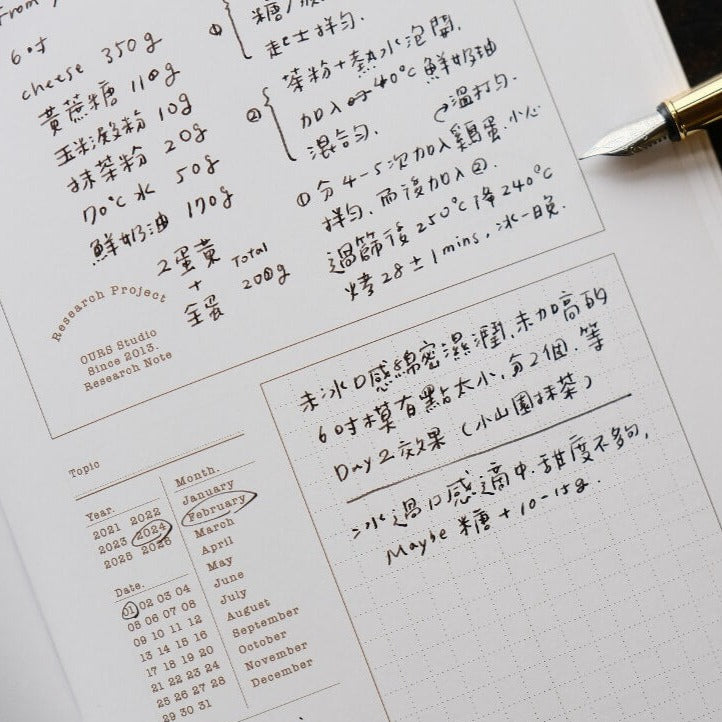 6吋
cheese 350g
黃蔗糖 110g
玉米澱粉 10g
抹茶粉 20g
70°C 水 50g
鮮奶油 170g
2蛋黃
+
全蛋
Total
200g
①
起士拌勻.
②
茶粉+熱水泡開.
加入 40°C 鮮奶油
混合勻.
溫打勻.
① 分4-5次加入雞蛋.小心
拌勻.而後加入②.
過篩後 250°C 降 240°C
烤 28±1 mins, 冰一晚.
Research Project
OURS Studio
Since 2013.
Research Note
未冰口感綿密濕潤,未加高的
6吋模有點太小,分2個.等
Day 2 效果 (小山園抹茶)
冰過口感適中.甜度不夠,
Maybe 糖 + 10-15g.
Topic
Year.
2021 2022
2023 2024
2025 2026
Month.
January
February
March
April
May
June
July
August
September
October
November
December
Date.
01 02 03 04
05 06 07 08
09 10 11 12
13 14 15 16
17 18 19 20
21 22 23 24
25 26 27 28
29 30 31